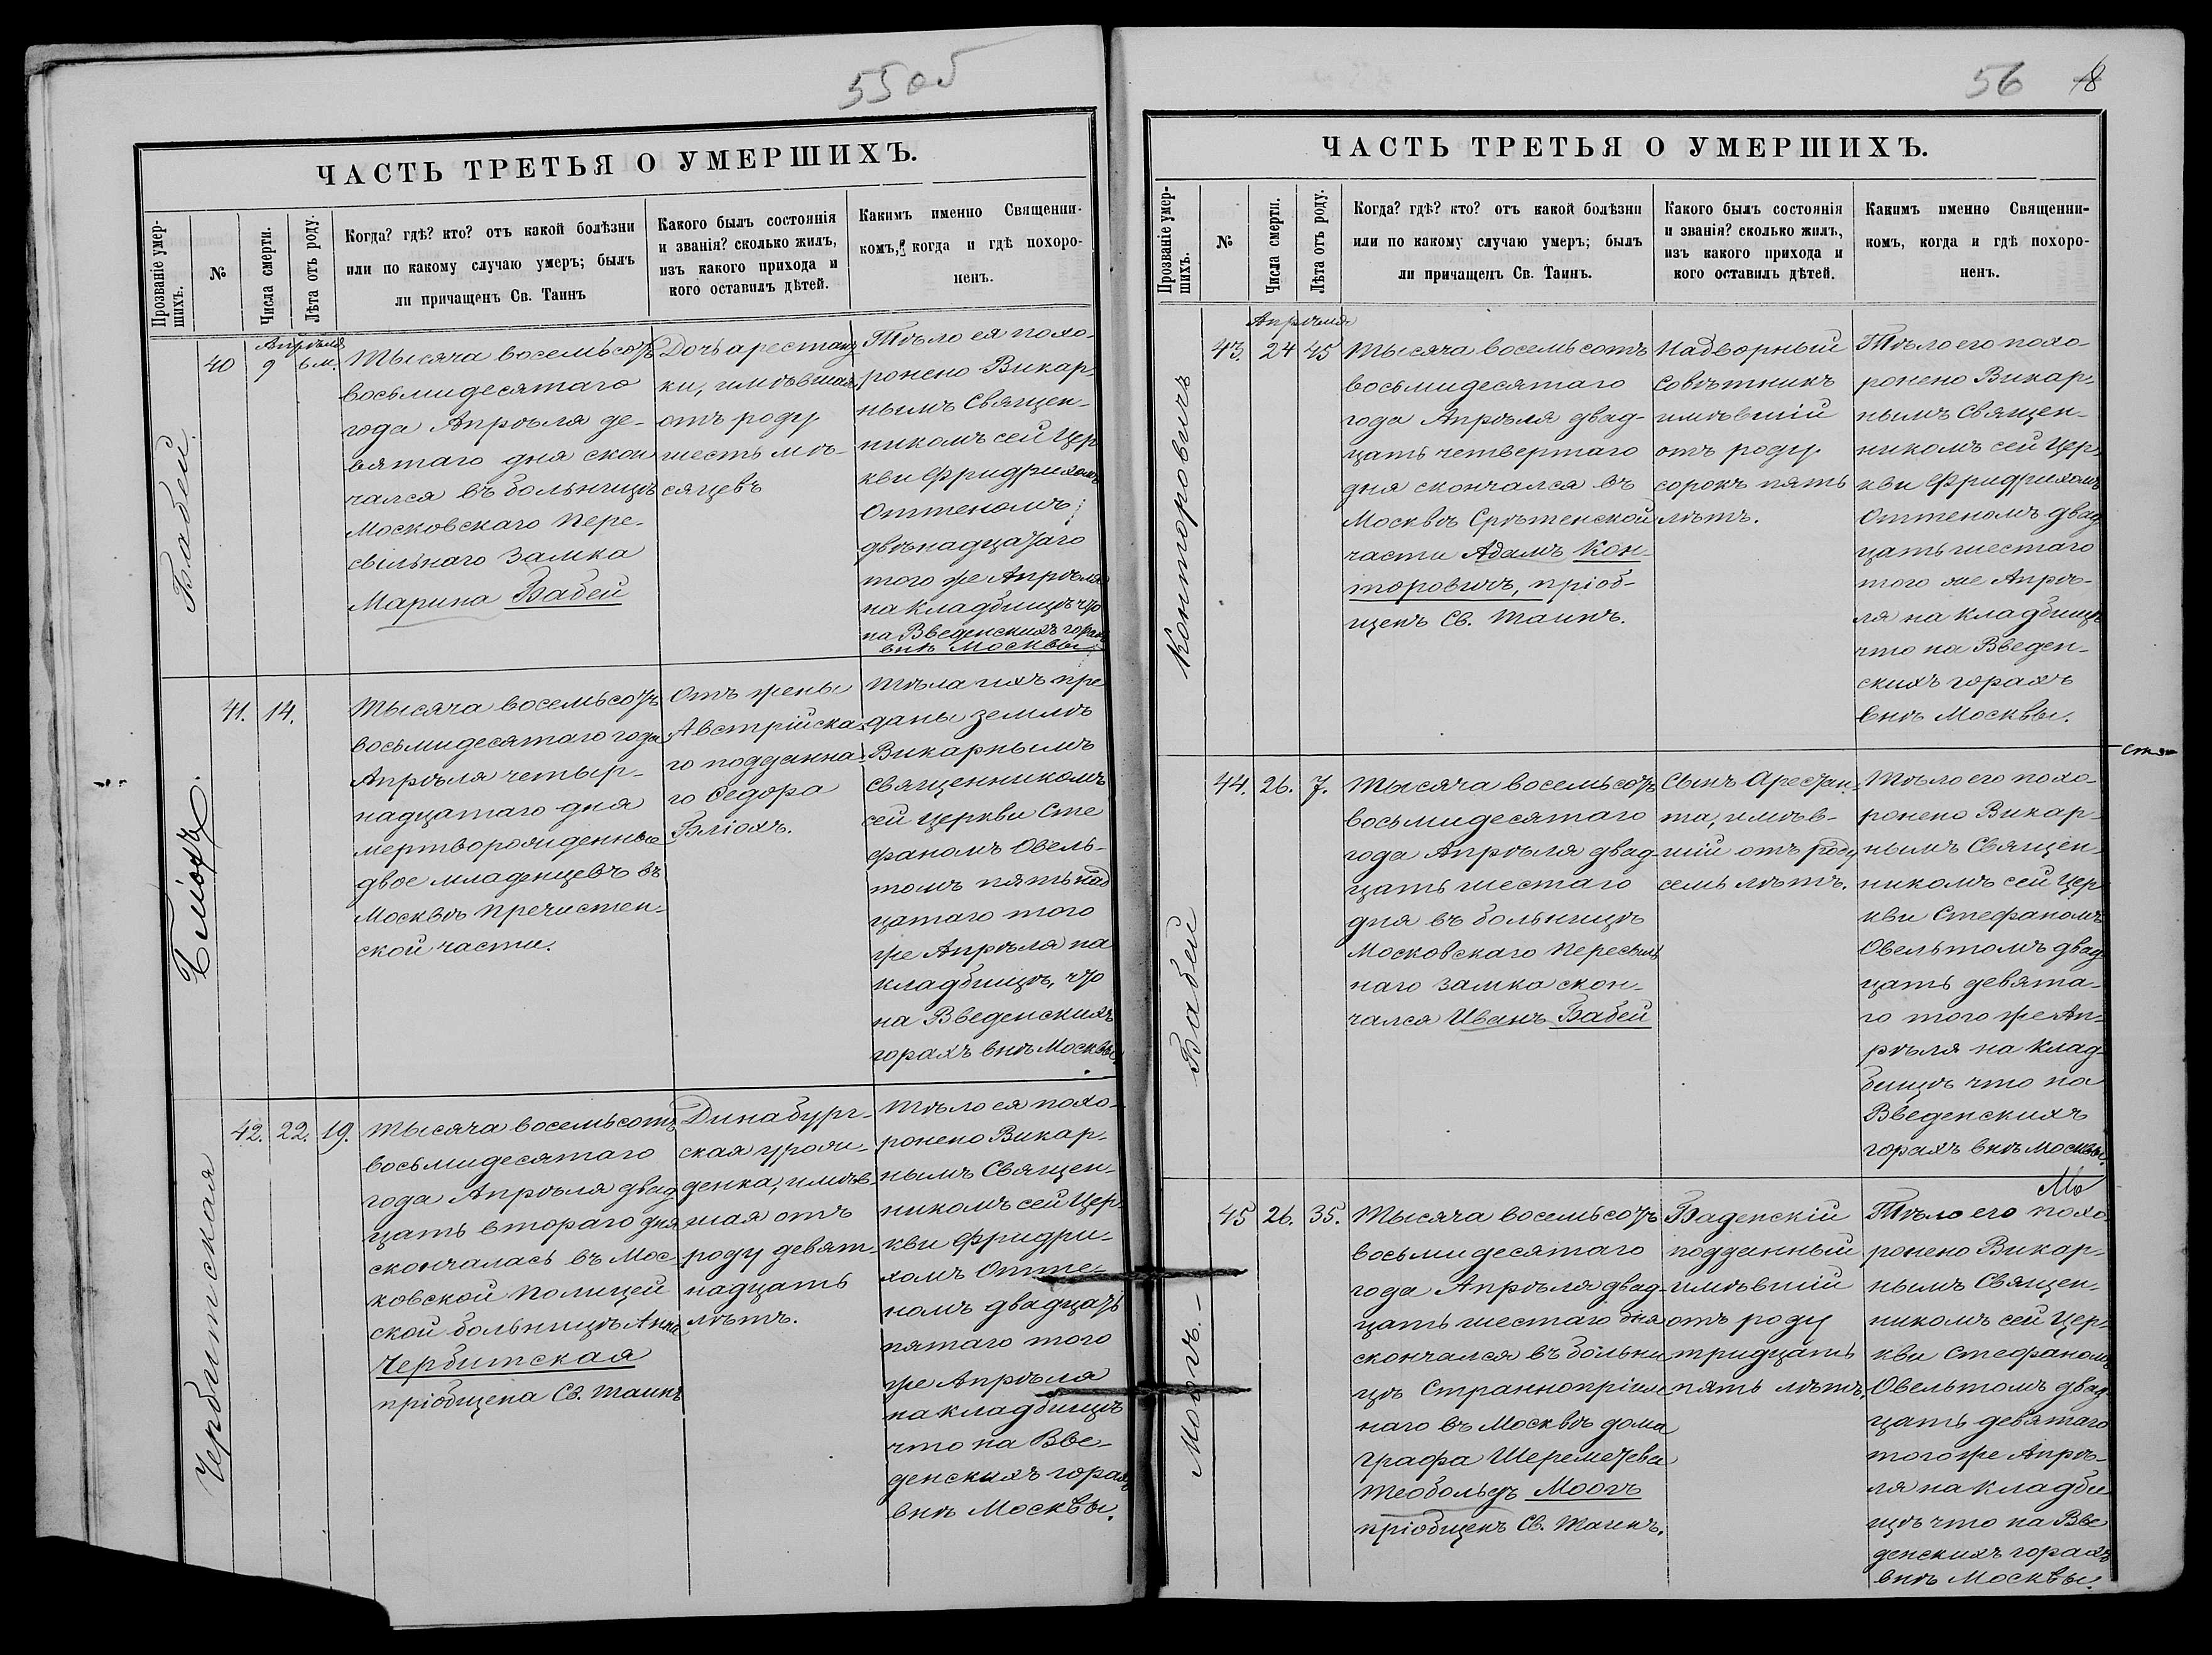 55 об
ЧАСТЬ ТРЕТЬЯ О УМЕРШИХЪ.
Прозваніе умер-
шихъ.
№
Числа смерти.
Лѣта отъ роду.
Когда? гдѣ? кто? отъ какой болѣзни
или по какому случаю умеръ; былъ
ли причащенъ Св. Таинъ
Какого былъ состоянія
и званія? сколько жилъ,
изъ какого прихода и
кого оставилъ дѣтей.
Какимъ именно Священни-
комъ, когда и гдѣ похоро-
ненъ.
Бабей.
40
Апрѣля
9
6 м.
Тысяча восемьсотъ
восьмидесятаго
года Апрѣля де-
вятаго дня скон
чался въ больницѣ
Московскаго Пере-
сыльнаго Замка
Марина Бабей
Дочь арестант
ки, имѣвшая
отъ роду
шесть мѣ-
сяцевъ
Тѣло ея похо-
ронено Викар-
нымъ Священ-
никомъ сей Цер
кви Фридрихомъ
Оттеномъ
двѣнадцатаго
того же Апрѣля
на кладбищѣ что
на Введенскихъ горахъ
внѣ Москвы.
Бліохъ.
41.
14.
Тысяча восемьсотъ
восьмидесятаго года
Апрѣля четыр-
надцатаго дня
мертворожденные
двое младенцевъ въ
Москвѣ Пречистен-
ской части.
Отъ жены
Австрійска-
го подданна-
го Федора
Бліохъ.
Тѣла ихъ пре
даны землѣ
Викарнымъ
священникомъ
сей Церкви Сте
фаномъ Овель-
томъ пятьнад
цатаго того
же Апрѣля на
кладбищѣ, что
на Введенскихъ
горахъ внѣ Москвы.
Чербитская
42.
22.
19.
Тысяча восемьсотъ
восьмидесятаго
года Апрѣля двад
цать втораго дня
скончалась въ Мос-
ковской Полицей
ской больницѣ Анна
Чербитская
пріобщена Св. Таинъ
Динабург-
ская урож-
денка, имѣв-
шая отъ
роду девят-
надцать
лѣтъ.
Тѣло ея похо-
ронено Викар-
нымъ Священ-
никомъ сей Цер-
кви Фридри-
хомъ Отте-
номъ двадцать
пятаго того
же Апрѣля
на кладбищѣ
что на Вве-
денскихъ горахъ
внѣ Москвы.
56
18
ЧАСТЬ ТРЕТЬЯ О УМЕРШИХЪ.
Прозваніе умер-
шихъ.
№
Числа смерти.
Лѣта отъ роду.
Когда? гдѣ? кто? отъ какой болѣзни
или по какому случаю умеръ; былъ
ли причащенъ Св. Таинъ.
Какого былъ состоянія
и званія? сколько жилъ,
изъ какого прихода и
кого оставилъ дѣтей.
Какимъ именно Священни-
комъ, когда и гдѣ похоро-
ненъ.
Конторовичъ
43.
Апрѣля
24
45
Тысяча восемьсотъ
восьмидесятаго
года Апрѣля двад-
цать четвертаго
дня скончался въ
Москвѣ Срѣтенской
части Адамъ Кон-
торовичъ, пріоб-
щенъ Св. Таинъ.
Надворный
Совѣтникъ
имѣвшій
отъ роду
сорокъ пять
лѣтъ.
Тѣло его похо-
ронено Викар-
нымъ Священ-
никомъ сей Цер
кви Фридрихомъ
Оттеномъ двад
цать шестаго
того же Апрѣ-
ля на кладбищѣ
что на Введен-
скихъ горахъ
внѣ Москвы.
Бабей
44.
26.
7.
Тысяча восемьсотъ
восьмидесятаго
года Апрѣля двад-
цать шестаго
дня въ больницѣ
Московскаго Пересыль
наго замка скон-
чался Иванъ Бабей
Сынъ Арестан-
та, имѣв-
шій отъ роду
семь лѣтъ.
Тѣло его похо-
ронено Викар-
нымъ Священ-
никомъ сей Цер
кви Стефаномъ
Овельтомъ двад-
цать девята-
го того же Ап-
рѣля на Клад-
бищѣ что на
Введенскихъ
горахъ внѣ Москвы.
Моогъ.-
45
26.
35.
Тысяча восемьсотъ
восьмидесятаго
года Апрѣля двад-
цать шестаго дня
скончался въ больни
цѣ Страннопріим
наго въ Москвѣ дома
Графа Шереметева
Теобольдъ Моогъ
пріобщенъ Св. Таинъ.
Баденскій
подданный
имѣвшій
отъ роду
тридцать
пять лѣтъ.
Мо
Тѣло его похо-
ронено Викар-
нымъ Священ-
никомъ сей Цер-
кви Стефаномъ
Овельтомъ двад-
цать девятаго
того же Апрѣ-
ля на кладби
щѣ что на Вве
денскихъ горахъ
внѣ Москвы.